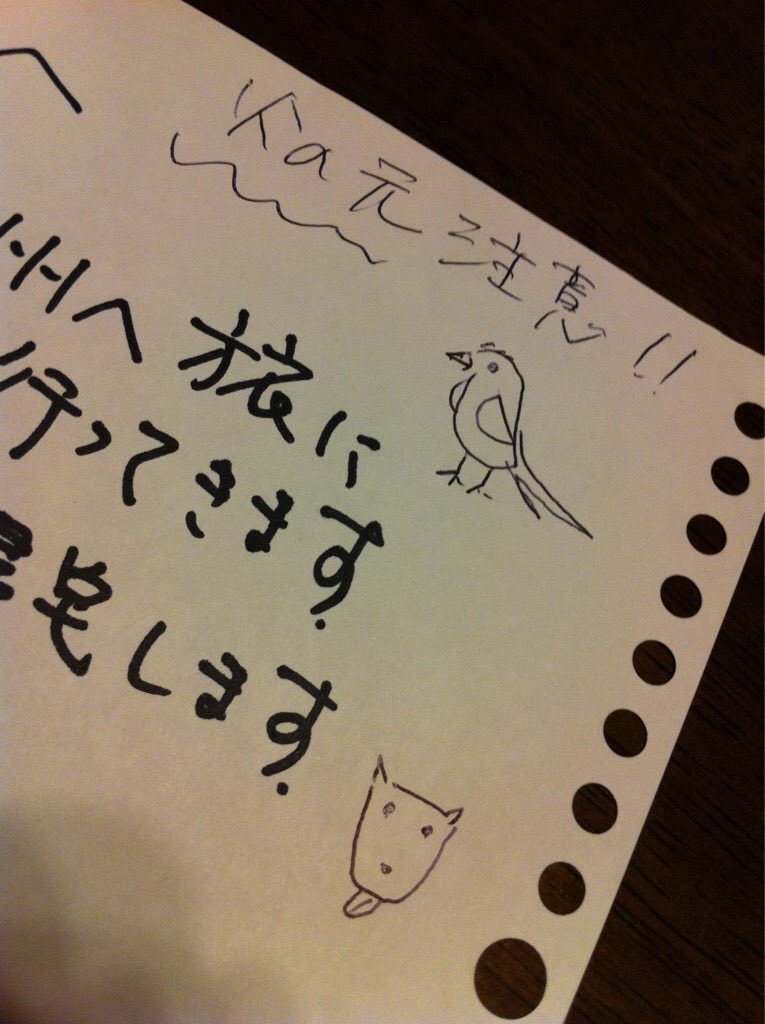 へ
火の元注意!!
州へ 旅に
行ってきます.
します.